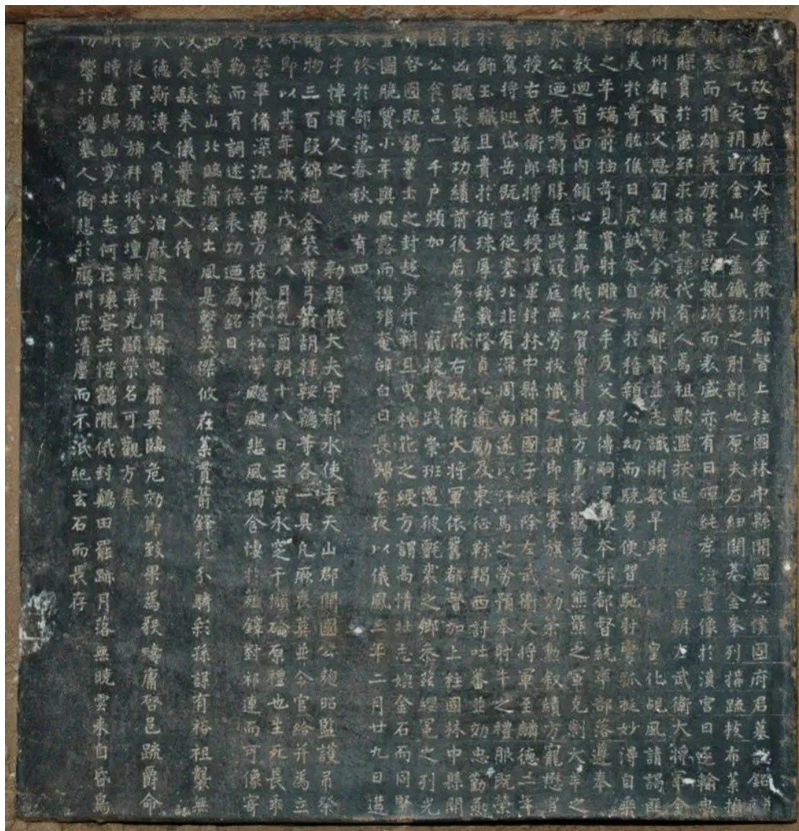 大唐故右驍衛大將軍金微州都督上柱國林中縣開國公僕固府君墓誌銘并序
公諱乙突朔野金山人蓋鐵勤之別部也原夫石紐開基金峯列構疏枝布葉擁
塞而推雄茂族豪宗跨龍城而表盛亦有日磾純孝泣畫像於漢宮日逐輸忠
委賝賮於蠻邸求諸史諜代有人焉祖歌濫拔延 皇朝左武衛大將軍金
微州都督父思匐繼襲金微州都督並志識開敏早歸 皇化覘風請謁匪
獨美於奇肱候日虔誠本自知於稽顙公幼而驍勇便習馳射彎弧挺妙得自乘
羊之年矯箭抽奇見賞射鵰之手及父歿傳嗣遂授本部都督統率部落遵奉
聲教迴首面內傾心盡節俄以賀魯背誕方事長羈爰命熊羆之軍克剿犬羊之
眾公迺先鳴制勝直踐寇庭無勞拔幟之謀即取搴旗之効策勳敘績方寵懋官
詔授右武衛郎將尋授護軍封林中縣開國子俄除左武衛大將軍至麟德二年
鑾駕將巡岱岳既言從塞北非有滯周南遂以汗馬之勞預奉射牛之禮服既榮
於飾玉職且貴於銜珠厚秩載隆貞心逾勵及東征靺鞨西討吐蕃並効忠勤亟
摧凶醜裒錄功績前後居多尋除右驍衛大將軍依舊都督加上柱國林中縣開
國公食邑一千戶頻加 寵授載踐崇班邁彼氈裘之鄉參跡纓冕之列光
膺啓國既錫茅土之封趍步升朝且曳桃花之綬方謂高情壯志媲金石而同堅
豈圖脆質小年與風露而俱殞奄辞白日長歸玄夜以儀鳳三年二月廿九日遘
疾終於部落春秋卌有四
天子悼惜久之 勑朝散大夫守都水使者天山郡開國公麴昭監護弔祭
賻物三百段錦袍金裝帶弓箭胡祿鞍韉等各一具凡厥喪葬並令官給并為立
碑即以其年歲次戊寅八月乙酉朔十八日壬寅永窆于纈碖原禮也生死長乖
哀榮畢備深沉苔霧方結慘於松塋飋颯悲風獨含悽於薤鐸對祁連而可像寄
勒而有詞述德表功迺為銘曰
西峙葱山北臨蒲海土風是繫英傑攸在葉貫箭鋒花分騎彩孫謀有裕祖襲無
改束髮來儀腰鞬入侍
天德斯溥人胥以泊獻款畢同輸忠靡異臨危効馬致果為毅疇庸啓邑疏爵命
官從軍擁旆拜將登壇赫弈光顯榮名可觀方奉
明時遽歸幽穸壯志何在瓌容共惜鶴隴俄封雞田罷跡月落無曉雲來自昏鳥
切響於鴻塞人銜悲於鴈門庶清塵而不泯紀玄石而長存